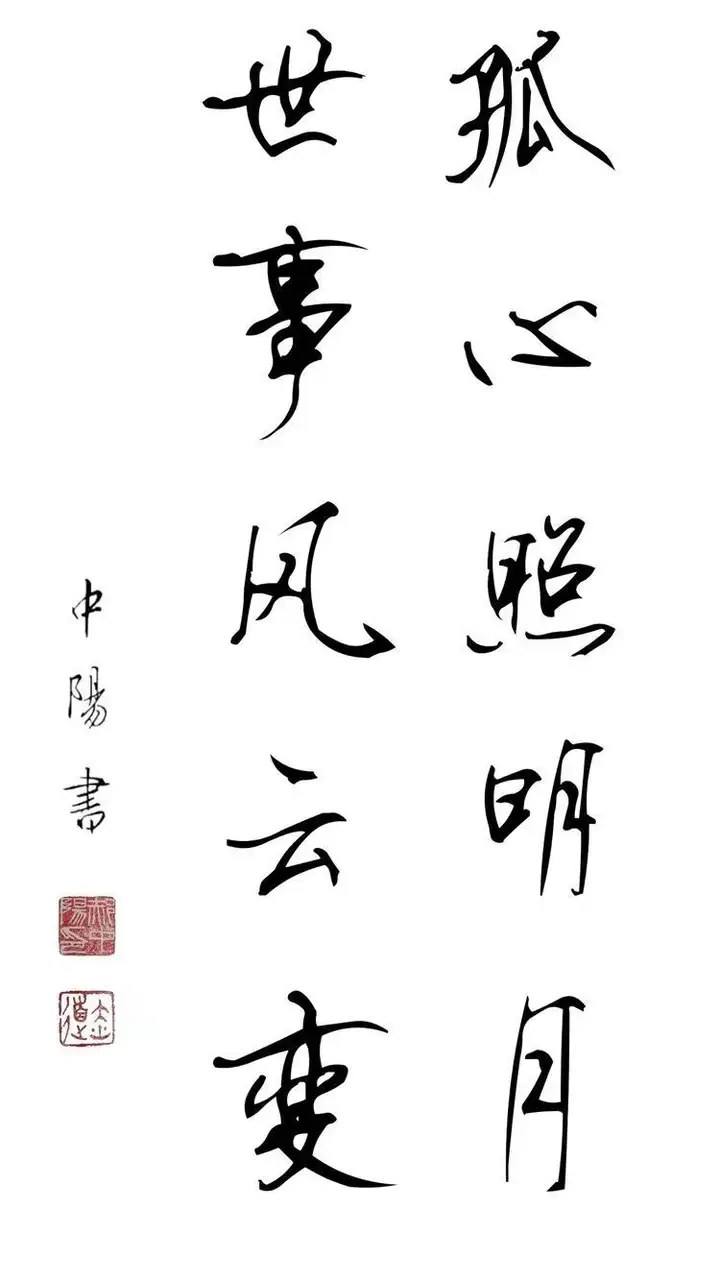 孤心照明月
世事风云变
中陽書